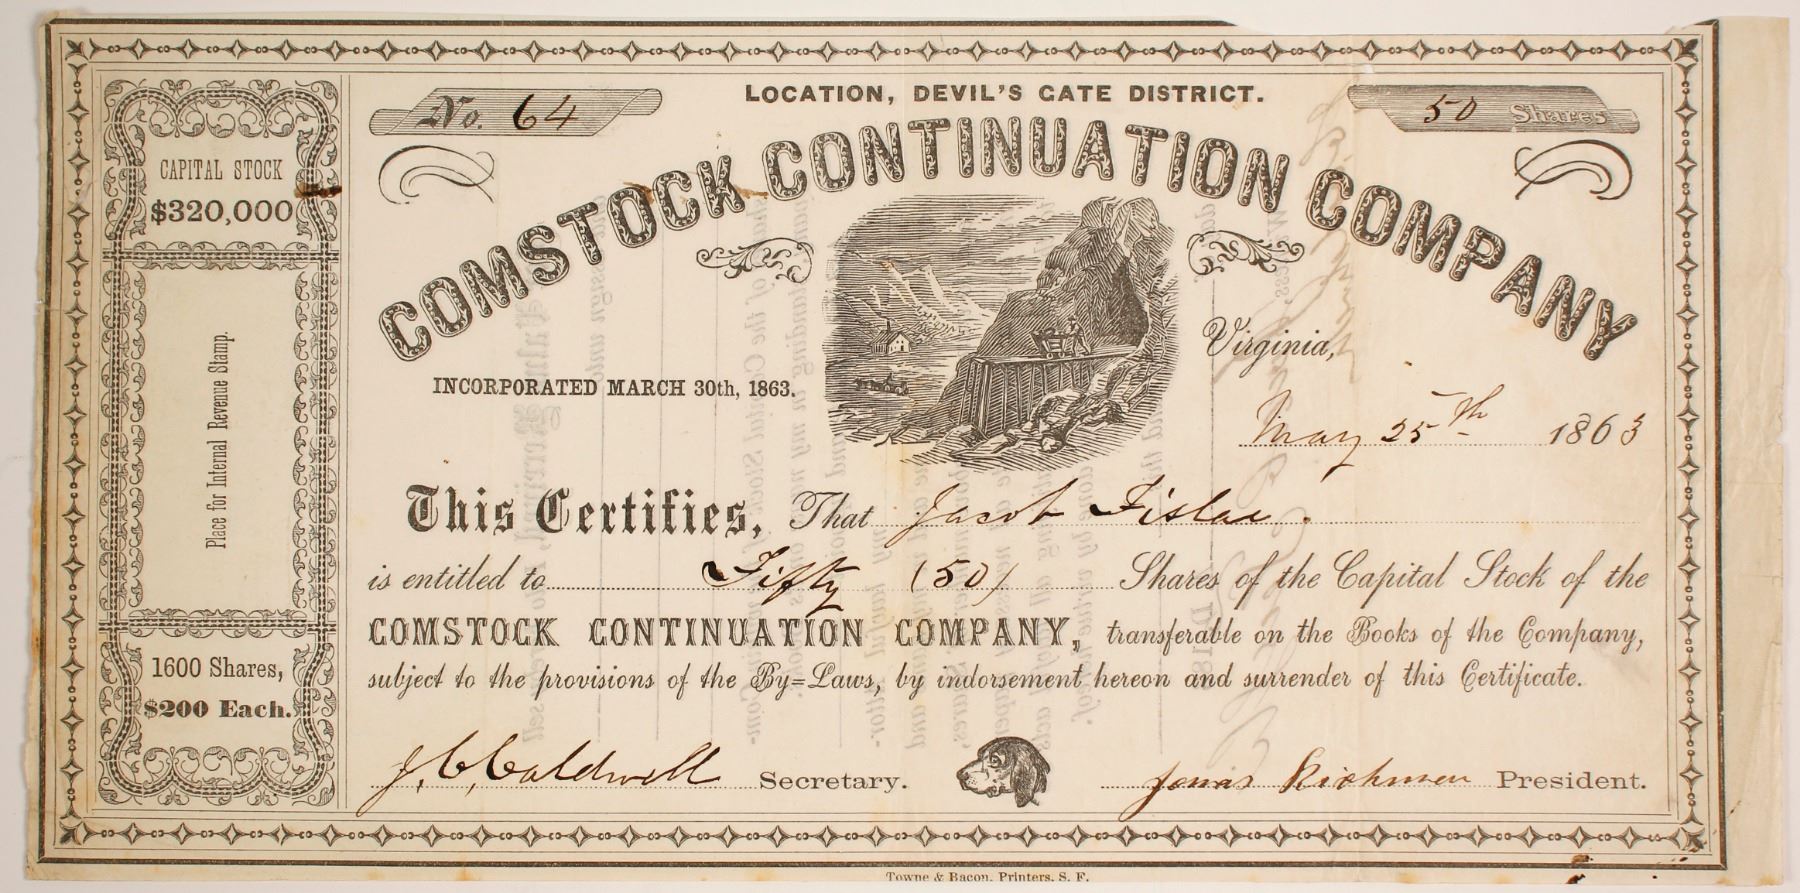 LOCATION, DEVIL'S GATE DISTRICT.
No. 64
50 Shares
COMSTOCK CONTINUATION COMPANY
CAPITAL STOCK
$320,000
Place for Internal Revenue Stamp.
1600 Shares,
$200 Each.
INCORPORATED MARCH 30th, 1863.
Virginia,
May 25th 1863
This Certifies, That Jacob
is entitled to Fifty (50) Shares of the Capital Stock of the
COMSTOCK CONTINUATION COMPANY, transferable on the Books of the Company,
subject to the provisions of the By=Laws, by indorsement hereon and surrender of this Certificate.
J. C. Caldwell Secretary.
Jonas Richman President.
Towne & Bacon, Printers, S. F.